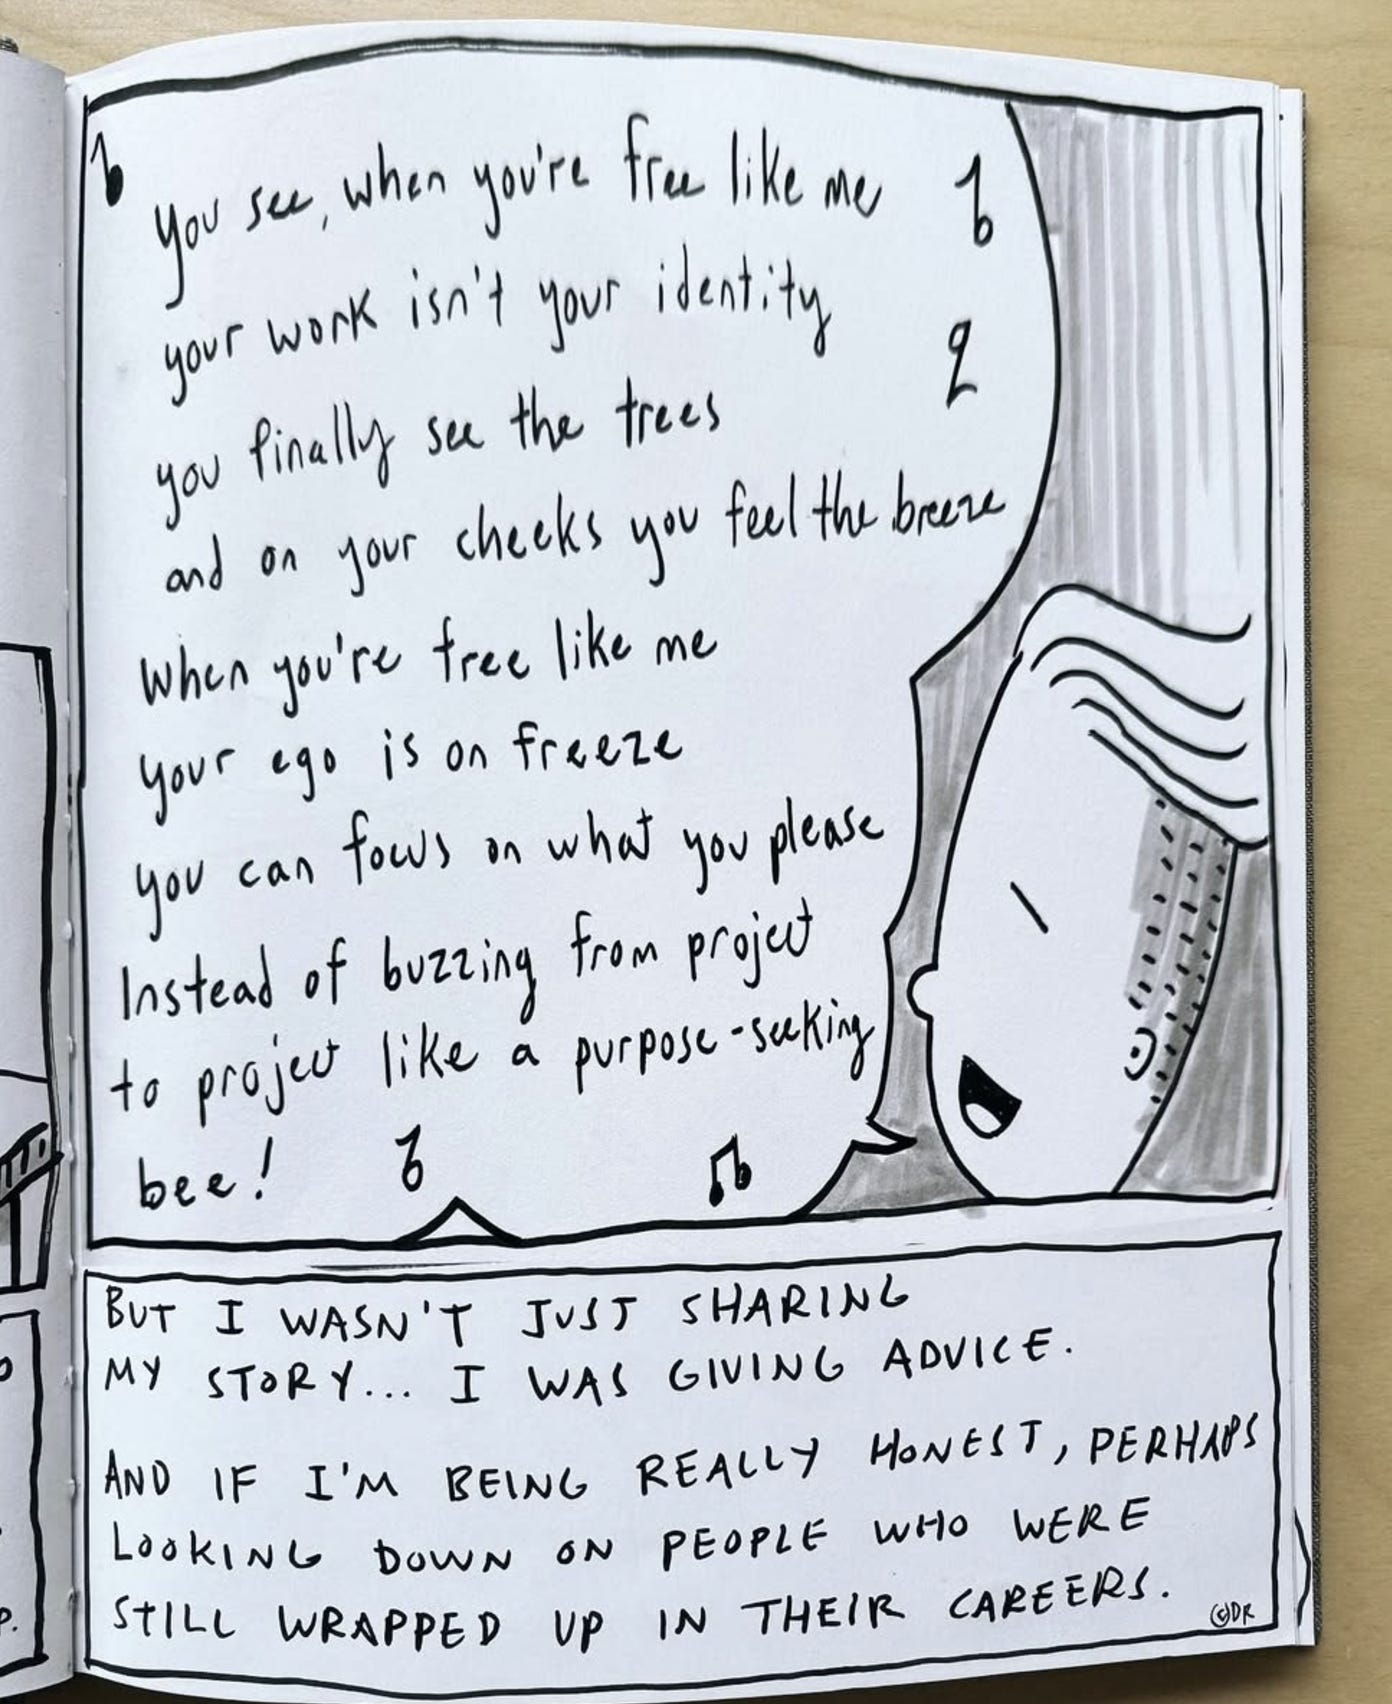 You see, when you're free like me
your work isn't your identity
you finally see the trees
and on your cheeks you feel the breeze
when you're free like me
your ego is on freeze
you can focus on what you please
Instead of buzzing from project
to project like a purpose-seeking
bee!
BUT I WASN'T JUST SHARING
MY STORY... I WAS GIVING ADVICE.
AND IF I'M BEING REALLY HONEST, PERHAPS
LOOKING DOWN ON PEOPLE WHO WERE
STILL WRAPPED UP IN THEIR CAREERS.
©DR